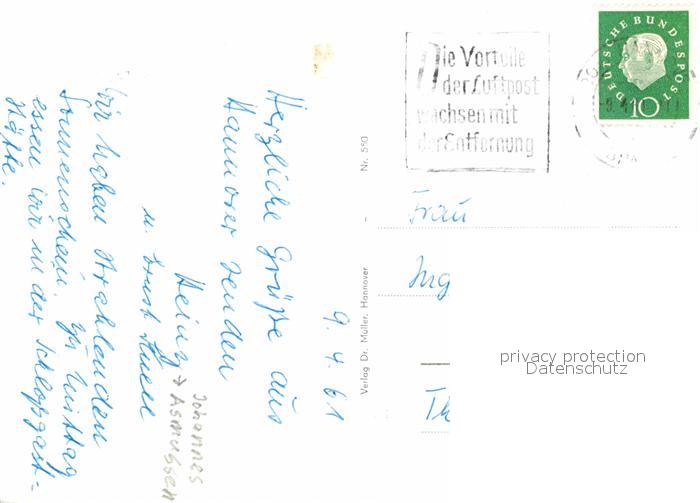 9. 4. 61
Herzliche Grüße aus
Hannover senden
Heinz → Johannes
Asmussen
u.
Wir haben strahlenden
Sonnenschein. Zu Mittag
essen wir in der Schloßgast-
stätte.
Verlag Dr. Müller, Hannover - Nr. 550
Die Vorteile
der Luftpost
wachsen mit
der Entfernung
DEUTSCHE BUNDESPOST
10
Frau
Ing
Th
privacy protection
Datenschutz